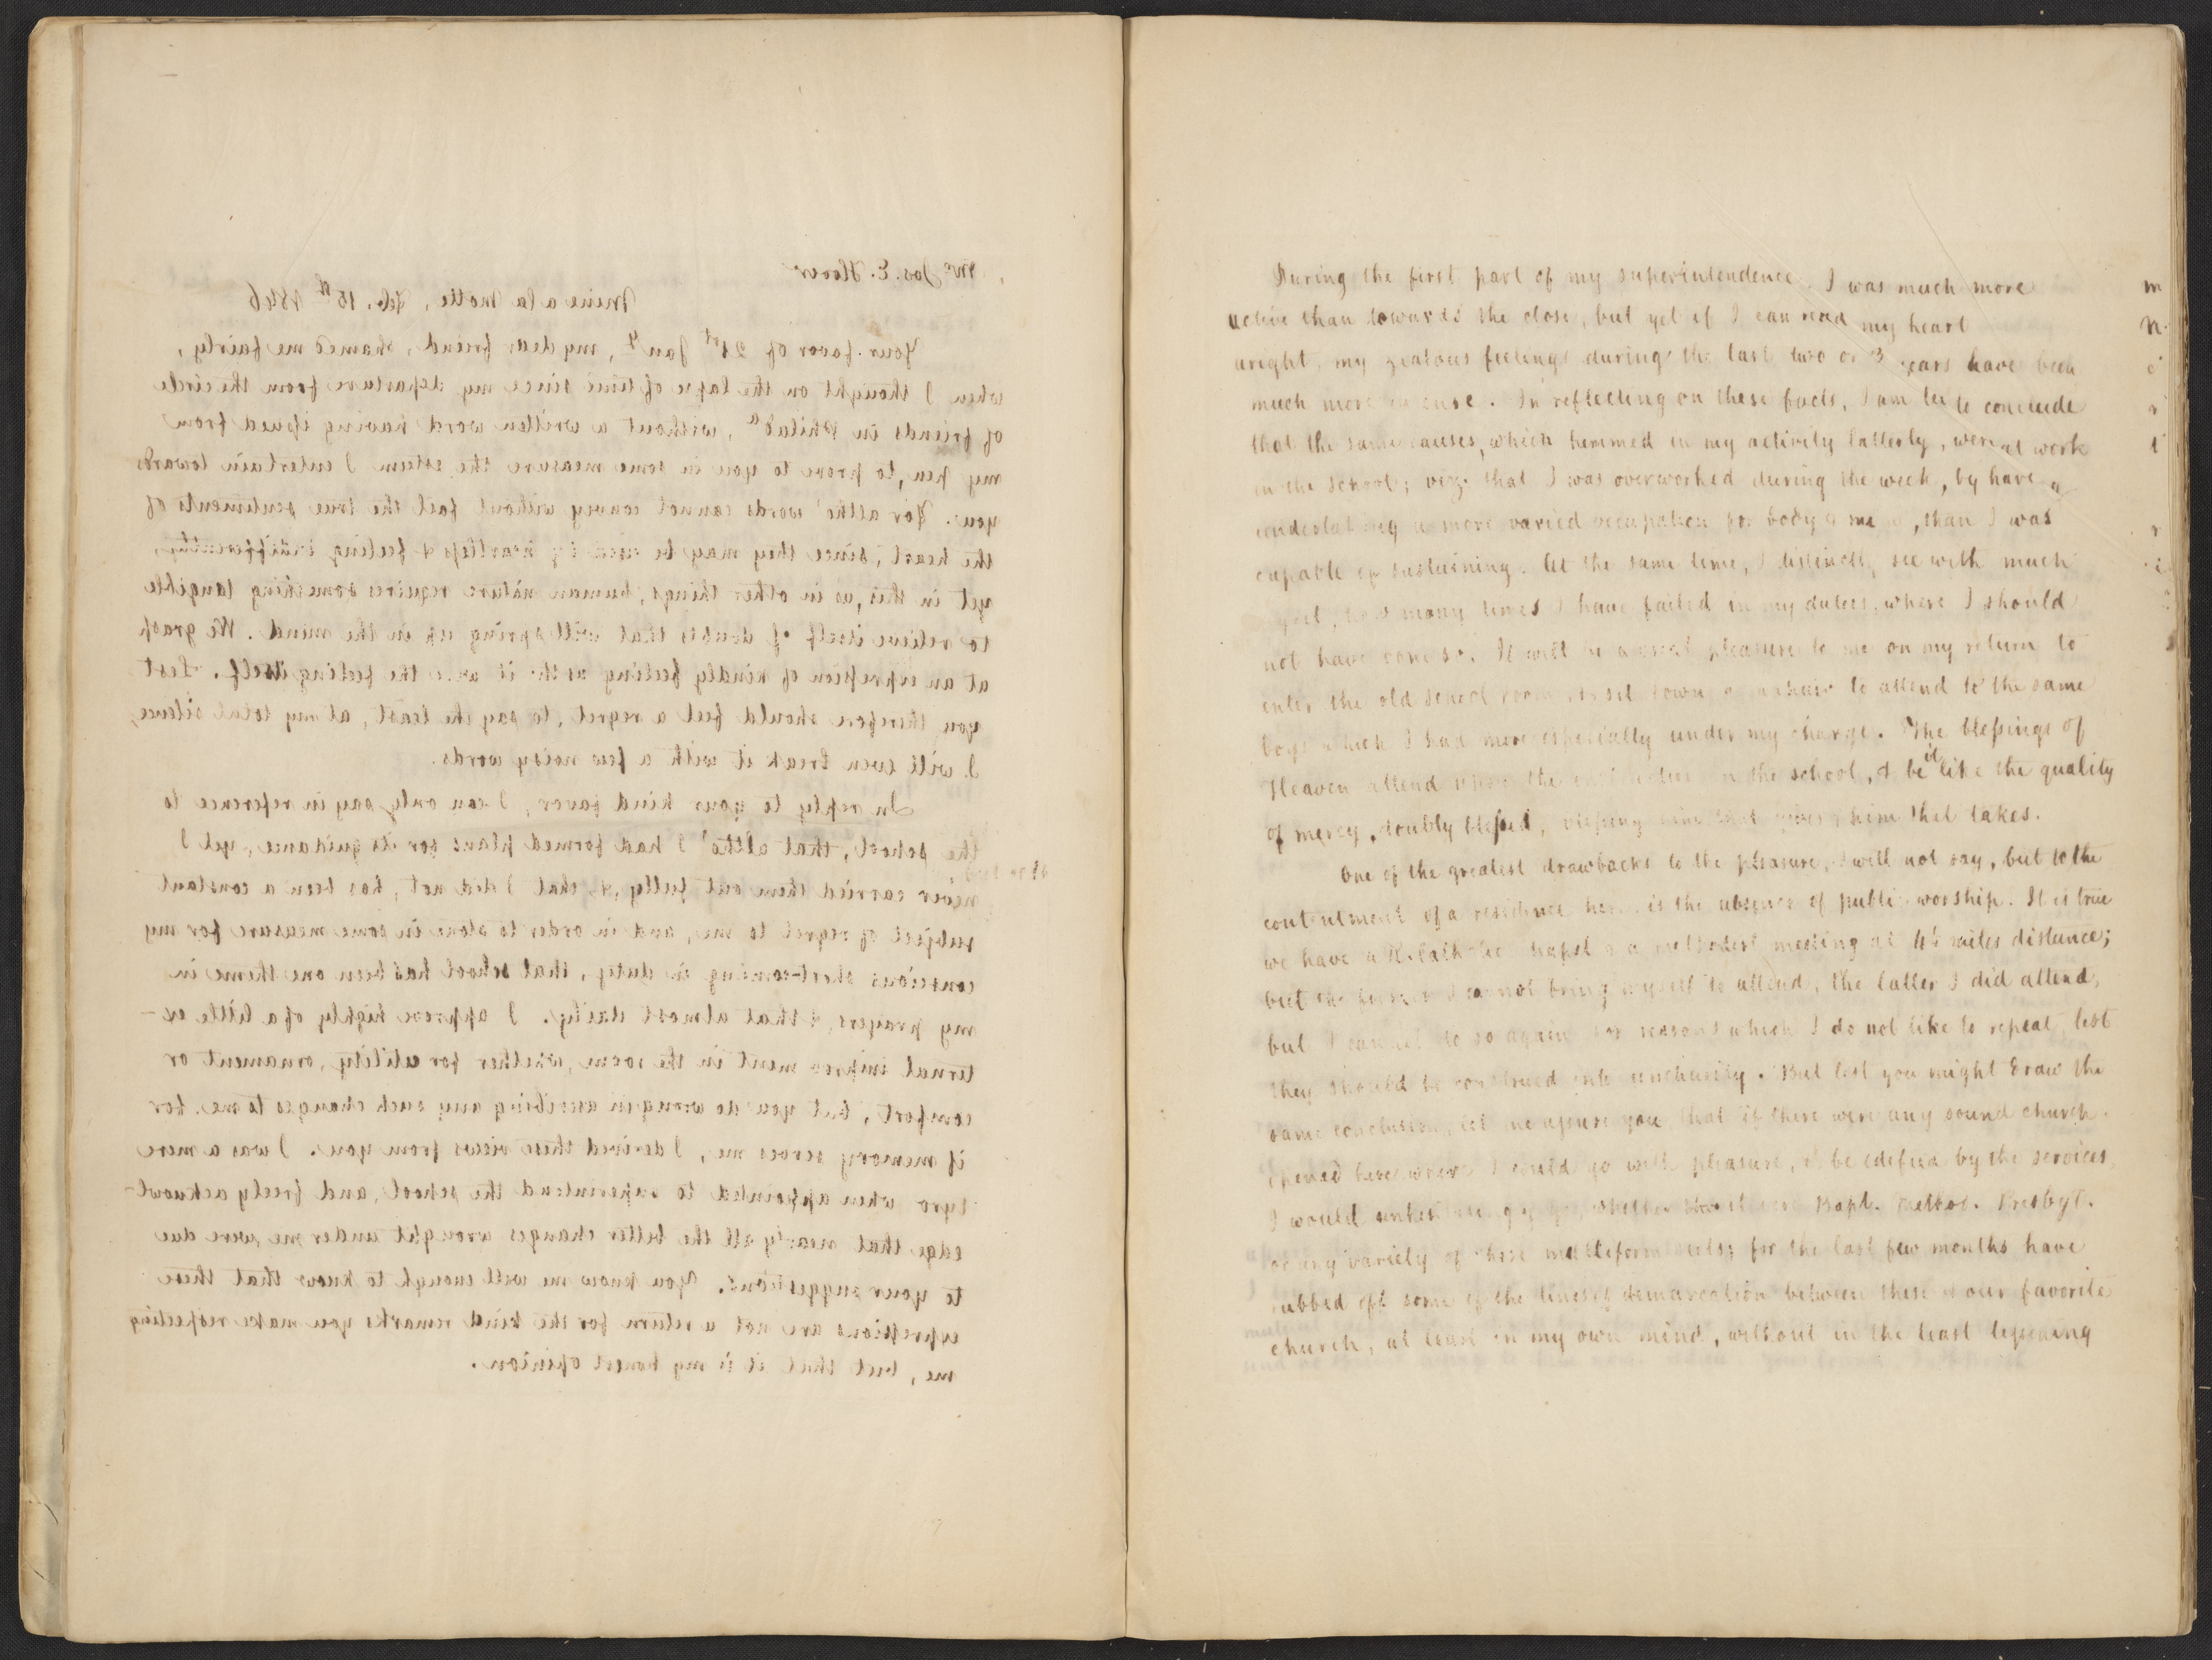 Mr Jos. E. Hover
Mine a la Motte, Feb. 15th 1846
Your favor of 21st Jany, my dear friend, shamed me fairly,
when I thought on the lapse of time since my departure from the circle
of friends in Philada, without a written word having issued from
my pen, to prove to you in some measure the esteem I entertain towards
you. For altho' words cannot convey without fail the true sentiments of
the heart, since they may be used by heartless & feeling indifferently,
yet in this, as in other things, human nature requires something tangible
to relieve itself of doubts that will spring up in the mind. We grasp
at an expression of kindly feeling as tho' it were the feeling itself. Lest
you therefore should feel a regret, to say the least, at my total silence,
I will even break it with a few noisy words.
In reply to your kind favor, I can only say in reference to
the school, that altho' I had formed plans for its guidance, yet I
never carried them out fully, &, that I did not, has been a constant
subject of regret to me, and in order to atone in some measure for my
conscious short-coming in duty, that school has been one theme in
my prayers, & that almost daily. I approve highly of a little ex-
ternal improvement in the room, whether for utility, ornament or
comfort, but you do wrong in ascribing any such changes to me. for
if memory serves me, I derived these views from you. I was a mere
tyro when appointed to superintend the school, and freely acknowl-
edge that nearly all the better changes wrought under me, were due
to your suggestions. You know me well enough to know that these
expressions are not a return for the kind remarks you make respecting
me, but that it is my honest opinion.
During the first part of my superintendence I was much more
active than towards the close, but yet if I can read my heart
aright, my zealous feelings during the last two or 3 years have been
much more intense. In reflecting on these facts, I am led to conclude
that the same causes, which hemmed in my activity latterly, were at work
in the school; viz. that I was overworked during the week, by have a
undertaking a more varied occupation for body & mind, than I was
capable of sustaining. At the same time, I distinctly see with much
regret, how many times I have failed in my duties, where I should
not have done so. It will be a great pleasure to me on my return to
enter the old school room, to sit down on a chair to attend to the same
boys which I had more especially under my charge. The blessings of
Heaven attend the in the school, & be it like the quality
of mercy, doubly blessed, blessing him that gives & him that takes.
One of the greatest drawbacks to the pleasure, I will not say, but to the
contentment of a residence here is the absence of public worship. It is true
we have a R. Catholic chapel & a methodist meeting at 4½ miles distance;
but the former I cannot bring myself to attend, the latter I did attend,
but I cannot do so again for reasons which I do not like to repeat, lest
they should be construed into uncharity. But lest you might draw the
same conclusion, let me assure you that if there were any sound church
opened here where I could go with pleasure, & be edified by the services
I would go whether Bapt. Method. Presbyt.
or any variety of these multiform sects; for the last few months have
rubbed off some of the lines of demarcation between these & our favorite
church, at least in my own mind, without in the least lessening